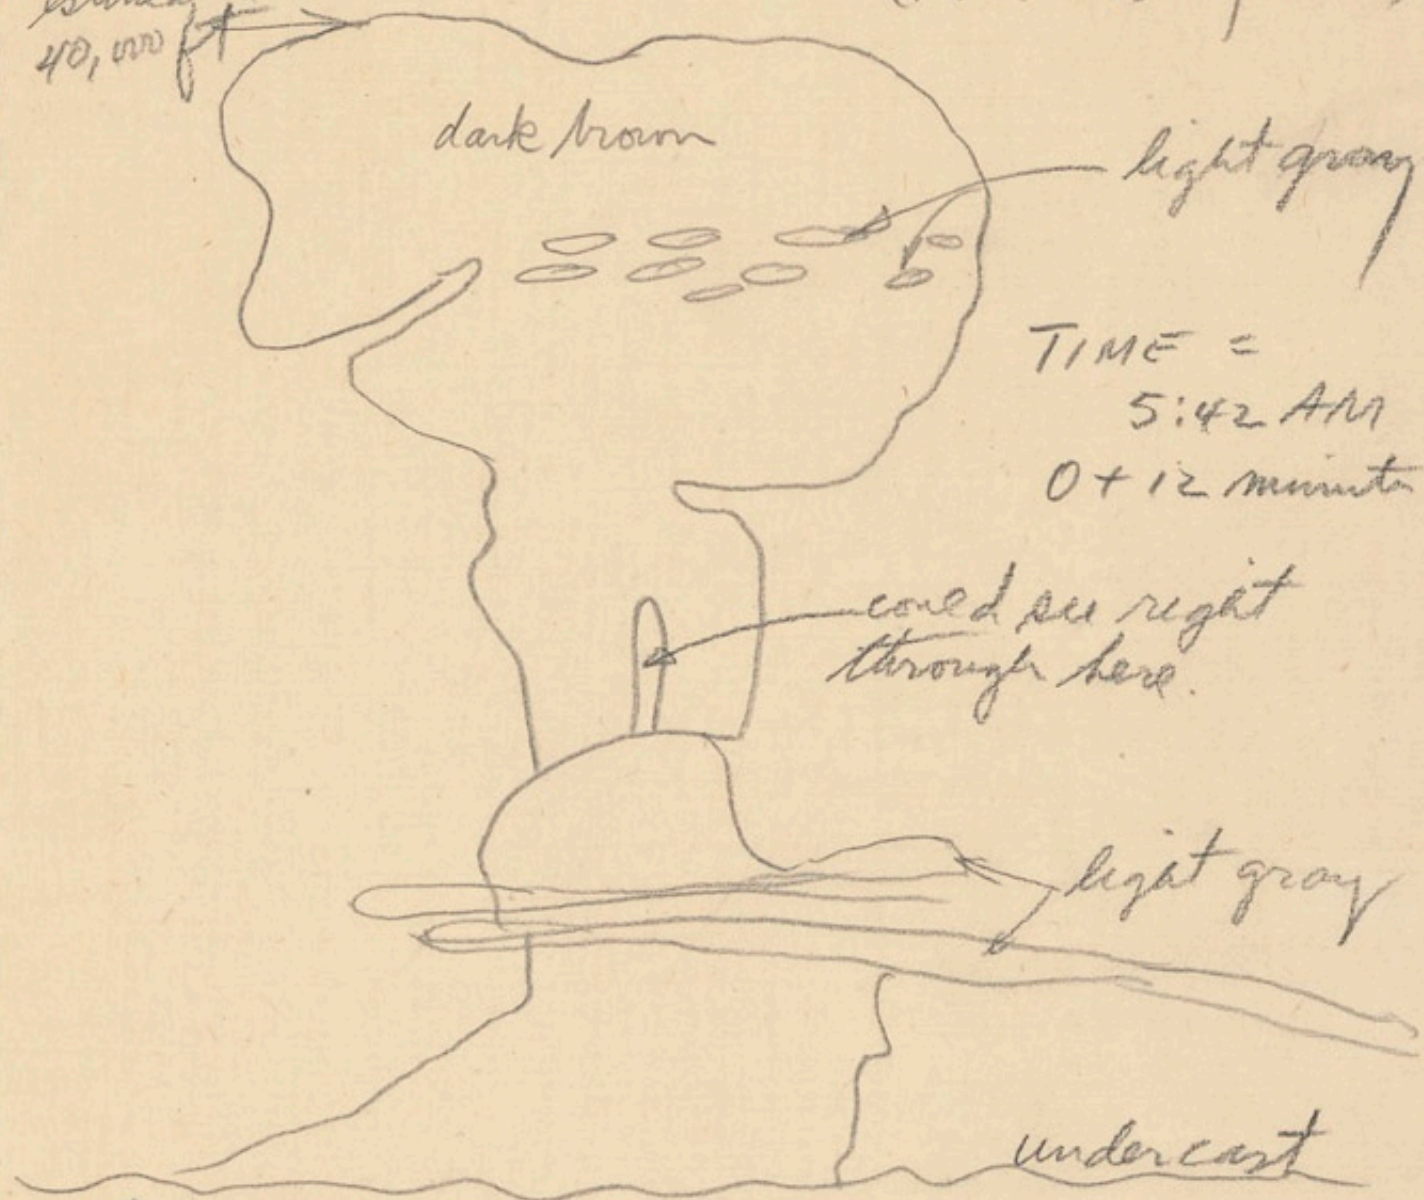 40,000 ft
dark brown
light gray
TIME =
5:42 AM
0 + 12 minutes
could see right
through here.
light gray
undercast